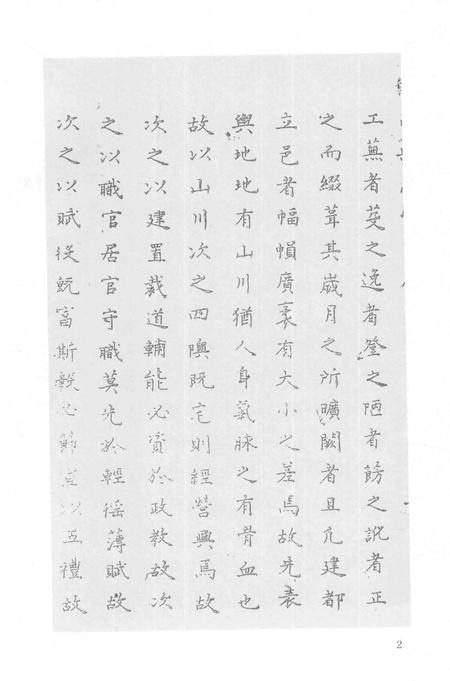 工蕪者芟之逸者登之陋者餝之訛者正
之而綴葺其歳月之所曠闕者且凢建都
立邑者幅幀廣袤有大小之差焉故先表
輿地地有山川猶人身氣脉之有骨血也
故以山川次之四隩既宅則經營興焉故
次之以建置裁道輔能必資於政教故次
之以職官居官守職莫先於輕徭薄賦故
次之以賦役既富斯穀必歸以五禮故
2